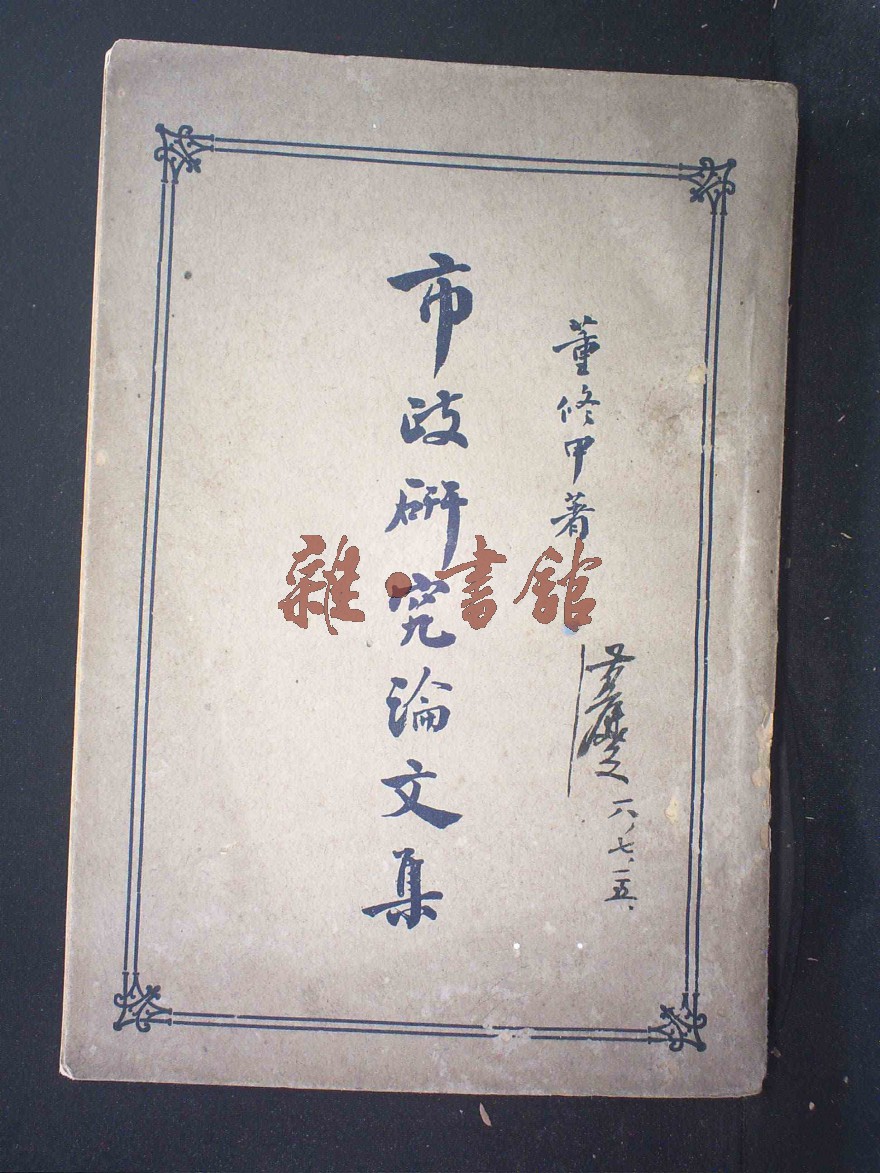 董修甲著
市政研究論文集
一八、七、一五、
雜·書館